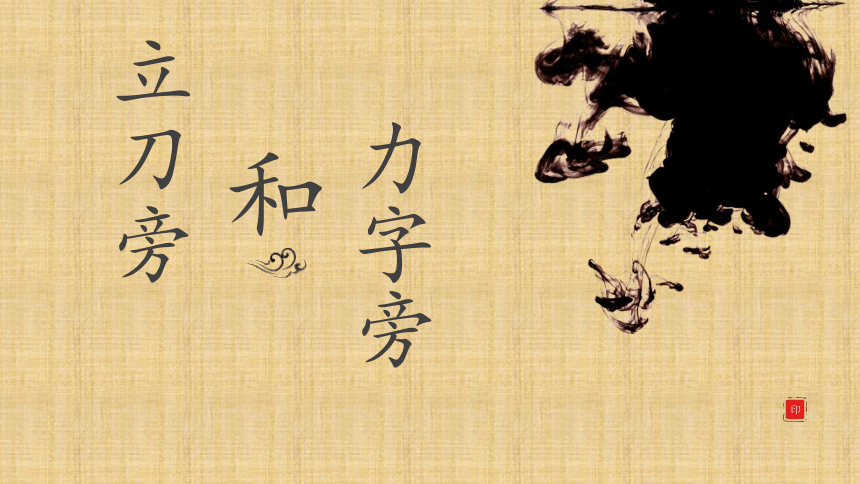 立刀旁
和
力字旁
印